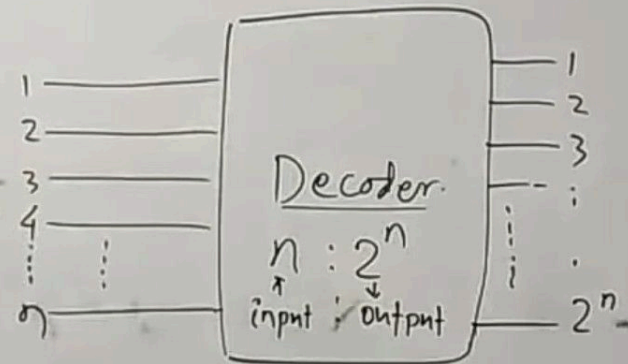 1
2
3
4
n
Decoder.
n : 2^n
input : output
1
2
3
2^n